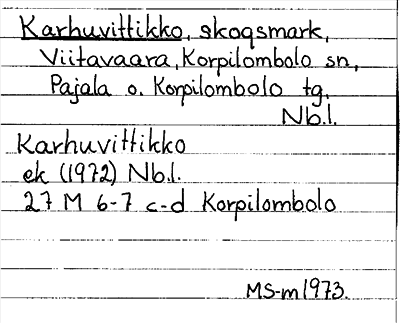 Karhuvittikko, skogsmark,
Viitavaara, Korpilombolo sn,
Pajala o. Korpilombolo tg,
Nb.l.
Karhuvittikko
ek (1972) Nb.l.
27 M 6-7 c-d Korpilombolo
MS-m 1973.